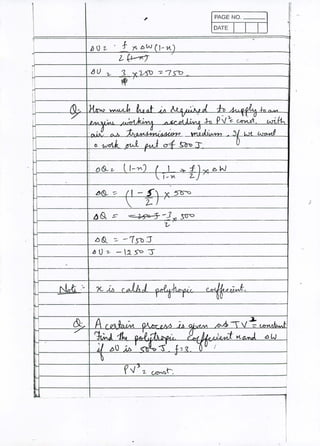 PAGE NO.
DATE
ΔU = f × ΔW (1-n)
2 (1-n)
ΔU = 3 × 250 = 750.
Q. How much heat is required to supply to an
engine working according to PV⁵ = const. with
air as transmission medium, if we want
o work out put of 500 J.
ΔQ = (1-n) ( 1/1-n + f/2 ) × ΔW
ΔQ = (1 - 5/2) × 500
ΔQ = -3/2 × 500
ΔQ = -750 J
ΔU = -1250 J
Note : x is called polytropic coefficient.
Q. A certain process is given as TV² = constant
find the polytropic coefficient n and ΔW
if ΔU is 500 J. f=3.
PV³ = const.